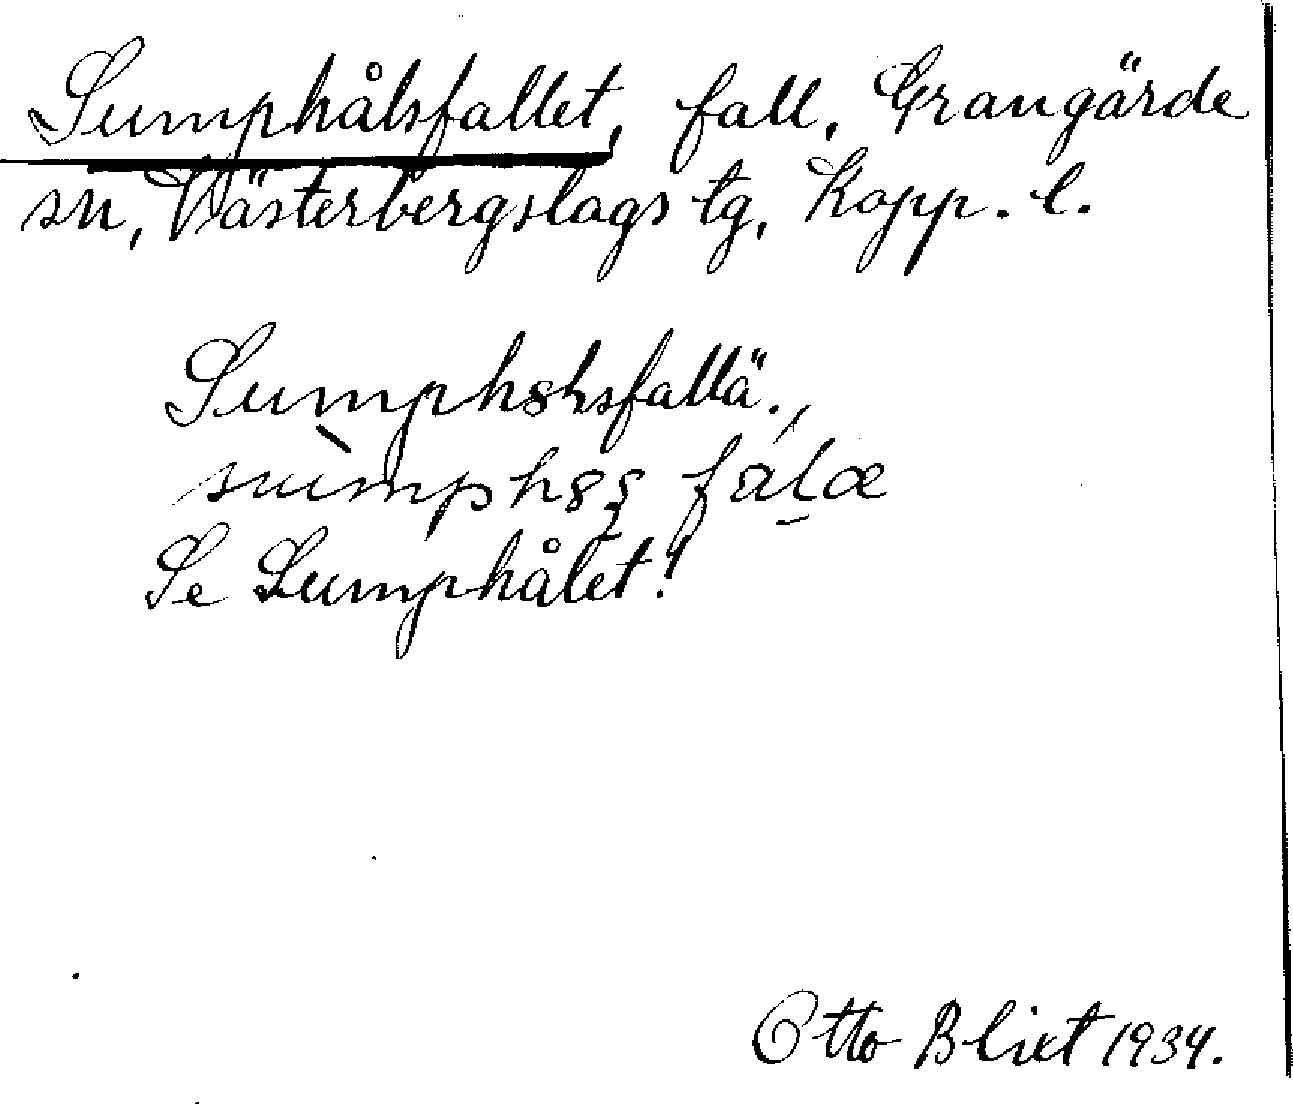 Sumphålsfallet, fall, Grangärde
sn, Västerbergslags tg, Kopp. l.
Sumph8hsfallä.,
Se Sumphålet!
Otto Blixt 1934.